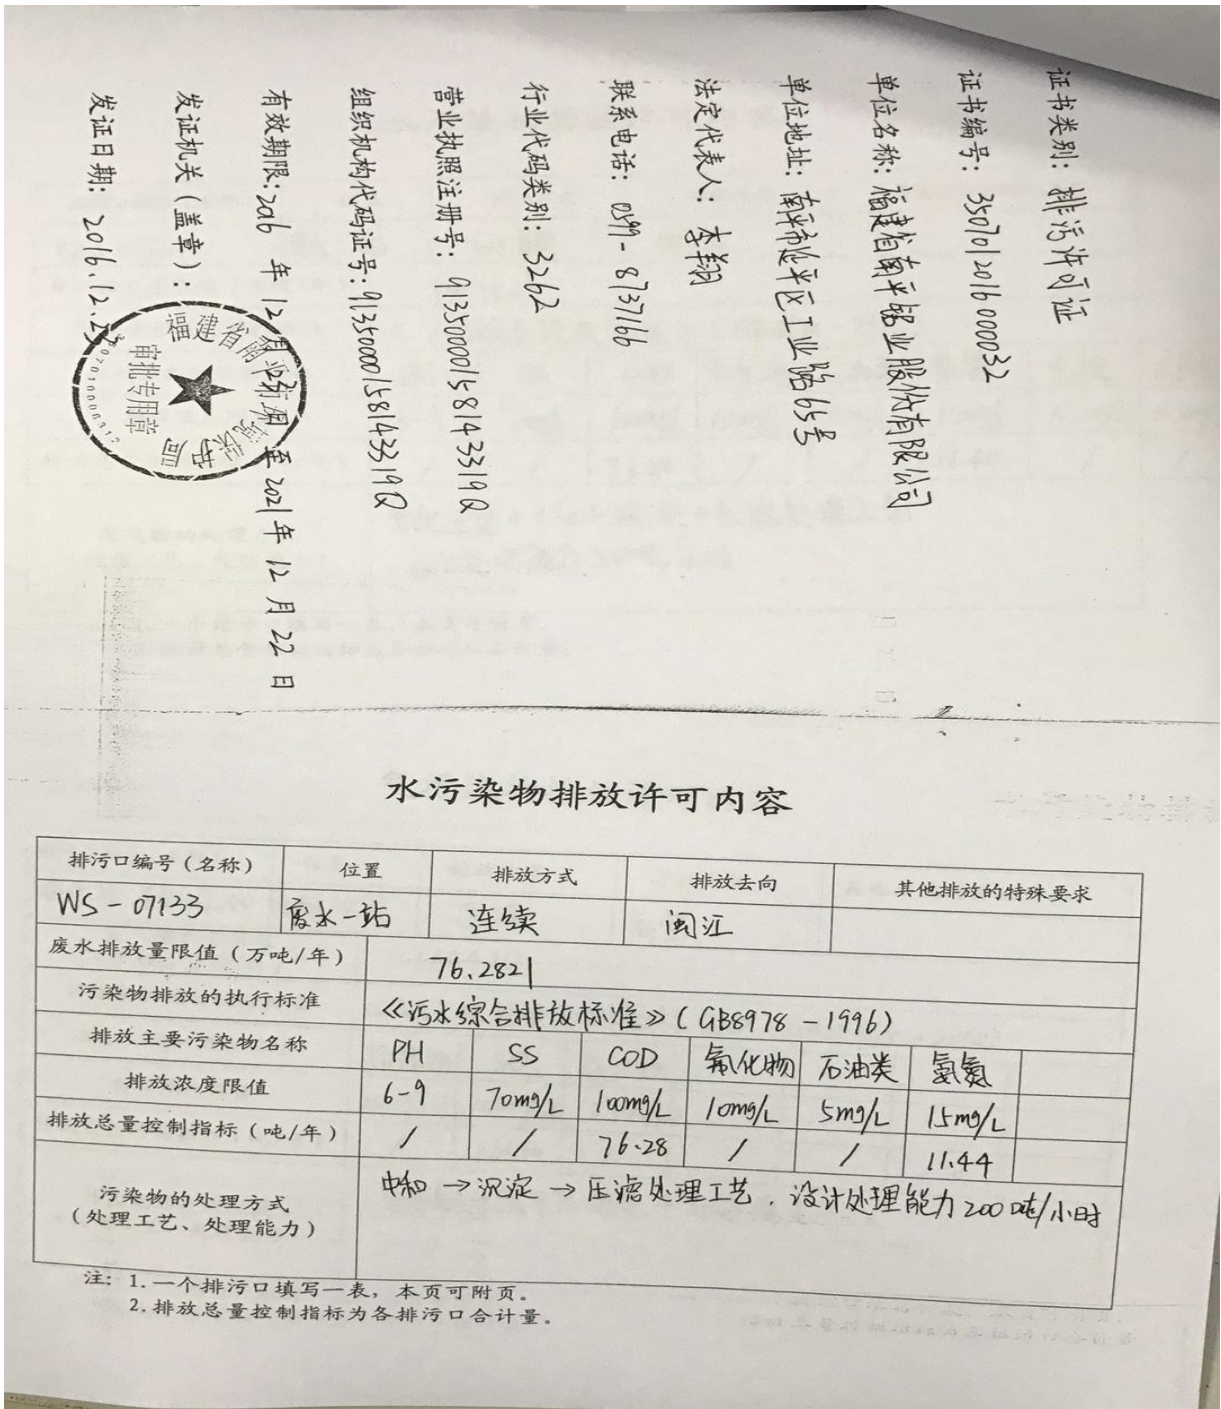 证书类别: 排污许可证
证书编号: 350701 2016 000032
单位名称: 福建省南平铝业股份有限公司
单位地址: 南平市延平区工业路65号
法定代表人: 李翔
联系电话: 0599-8737166
行业代码类别: 3262
营业执照注册号: 91350000158143319Q
组织机构代码证号: 91350000158143319Q
有效期限: 2016 年 12 月 23 日 至 2021 年 12 月 22 日
发证机关（盖章）:
发证日期: 2016.12.23
福建省南平市环境保护局
审批专用章
水污染物排放许可内容
排污口编号（名称） 位置 排放方式 排放去向 其他排放的特殊要求
WS-07133 废水一站 连续 闽江
废水排放量限值（万吨/年） 76.2821
污染物排放的执行标准 《污水综合排放标准》(GB8978-1996)
排放主要污染物名称 PH SS COD 氟化物 石油类 氨氮
排放浓度限值 6-9 70mg/L 100mg/L 10mg/L 5mg/L 15mg/L
排放总量控制指标（吨/年） / / 76.28 / / 11.44
污染物的处理方式
（处理工艺、处理能力）
中和→沉淀→压滤处理工艺.设计处理能力200吨/小时
注: 1.一个排污口填写一表，本页可附页。
2.排放总量控制指标为各排污口合计量。